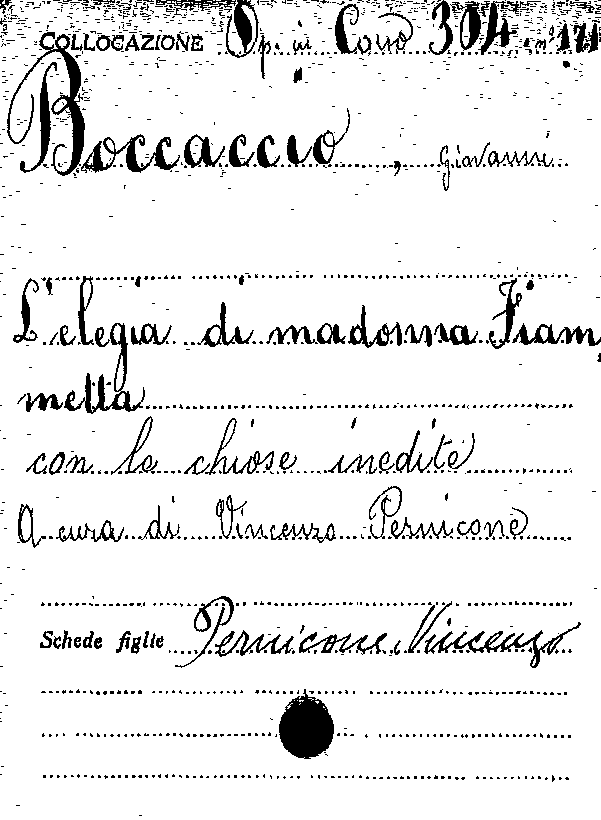 COLLOCAZIONE Op. in Caró 304 n° 171
Boccaccio, Giovanni
L'elegia di madonna Fiam
metta
con le chiose inedite
A cura di Vincenzo Pernicone
Schede figlie Pernicone, Vincenzo